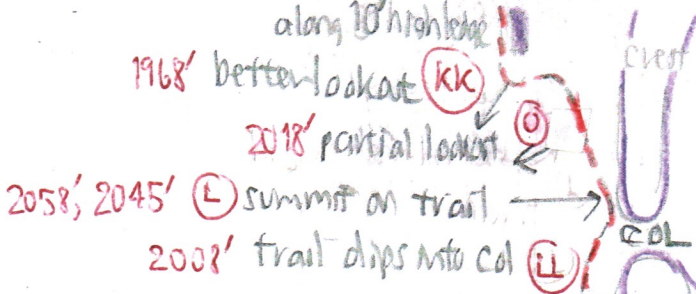 along 10' high ledge
crest
1968' better lookout KK
2018' partial lookout O
2058', 2045' L summit on trail
COL
2008' trail dips into col LL